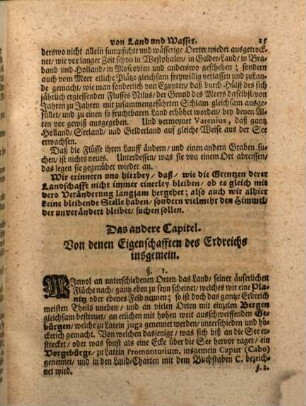 von Land und Wasser. 15
derswo nicht allein sumpfichte und wässerige Oerter wieder ausgetrock-
net, wie vor langer Zeit schon in Westphalen, in Gelder-Land, in Bra-
band und Holland, in Moscovien und anderswo geschehen; sondern
auch vom Meer etliche Plätze gleichsam freywillig verlassen und zu Lan-
de gemacht, wie man sonderlich von Egypten, daß durch Hülff des sich
jährlich ergiessenden Flusses Nilus, der Grund des Meers daselbst von
Jahren zu Jahren mit zusammengeführten Schlam gleichsam ausge-
füllet, und zu einem so fruchtbaren Land erhöhet worden, bey denen Al-
ten vor gewiß ausgegeben. Und vermeynet Varenius, daß gantz
Holland, Seeland, und Gelderland auf gleiche Weise aus der See
erwachsen.
Daß die Flüsse ihren Lauff ändern, und einen andern Graben su-
chen, ist nichts neues. Unterdessen, was sie von einem Ort abreissen,
das legen sie gegenüber wieder an.
Wir erinnern uns hierbey, daß, wie die Grentzen derer
Landschafft nicht immer einerley bleiben, ob es gleich mit
dero Veränderung langsam hergehet; also auch wir allhier
keine bleibende Stelle haben, sondern vielmehr den Himmel,
der unverändert bleibet, suchen sollen.
Das andere Capitel.
Von denen Eigenschafften des Erdreichs
insgemein.
§. 1.
Wiewol an unterschiedenen Orten das Land seiner äuserlichen
Fläche nach, gantz eben zu seyn scheinet, welches wir eine Pla-
nitz oder ebenes Feld nennen; so ist doch das gantze Erdreich
meisten Theils uneben, und an vielen Orten mit einzelen Bergen
gleichsam bestreuet, an etlichen mit hohen weit ausschweiffenden Ge-
bürgen, welche zu Latein juga genennet werden, unterschieden und hö-
ckerich gemacht. Von welchen dasjenige, was sich biß an die See er-
strecket, oder was sonst als eine Ecke über die See hervor raget, ein
Vorgebürge, zu Latein Promontorium, insgemein Caput (Cabo)
genennet, und in den Land-Charten mit dem Buchstaben C. bezeich-
net wird.
§. 2.